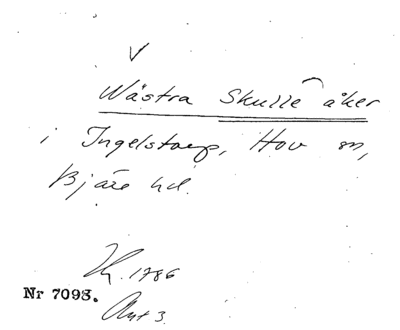 V
Wästra Skulle åker
i Ingelstorp, Hov sn,
Bjäre hd.
1786
Nr 7098.
Akt 3